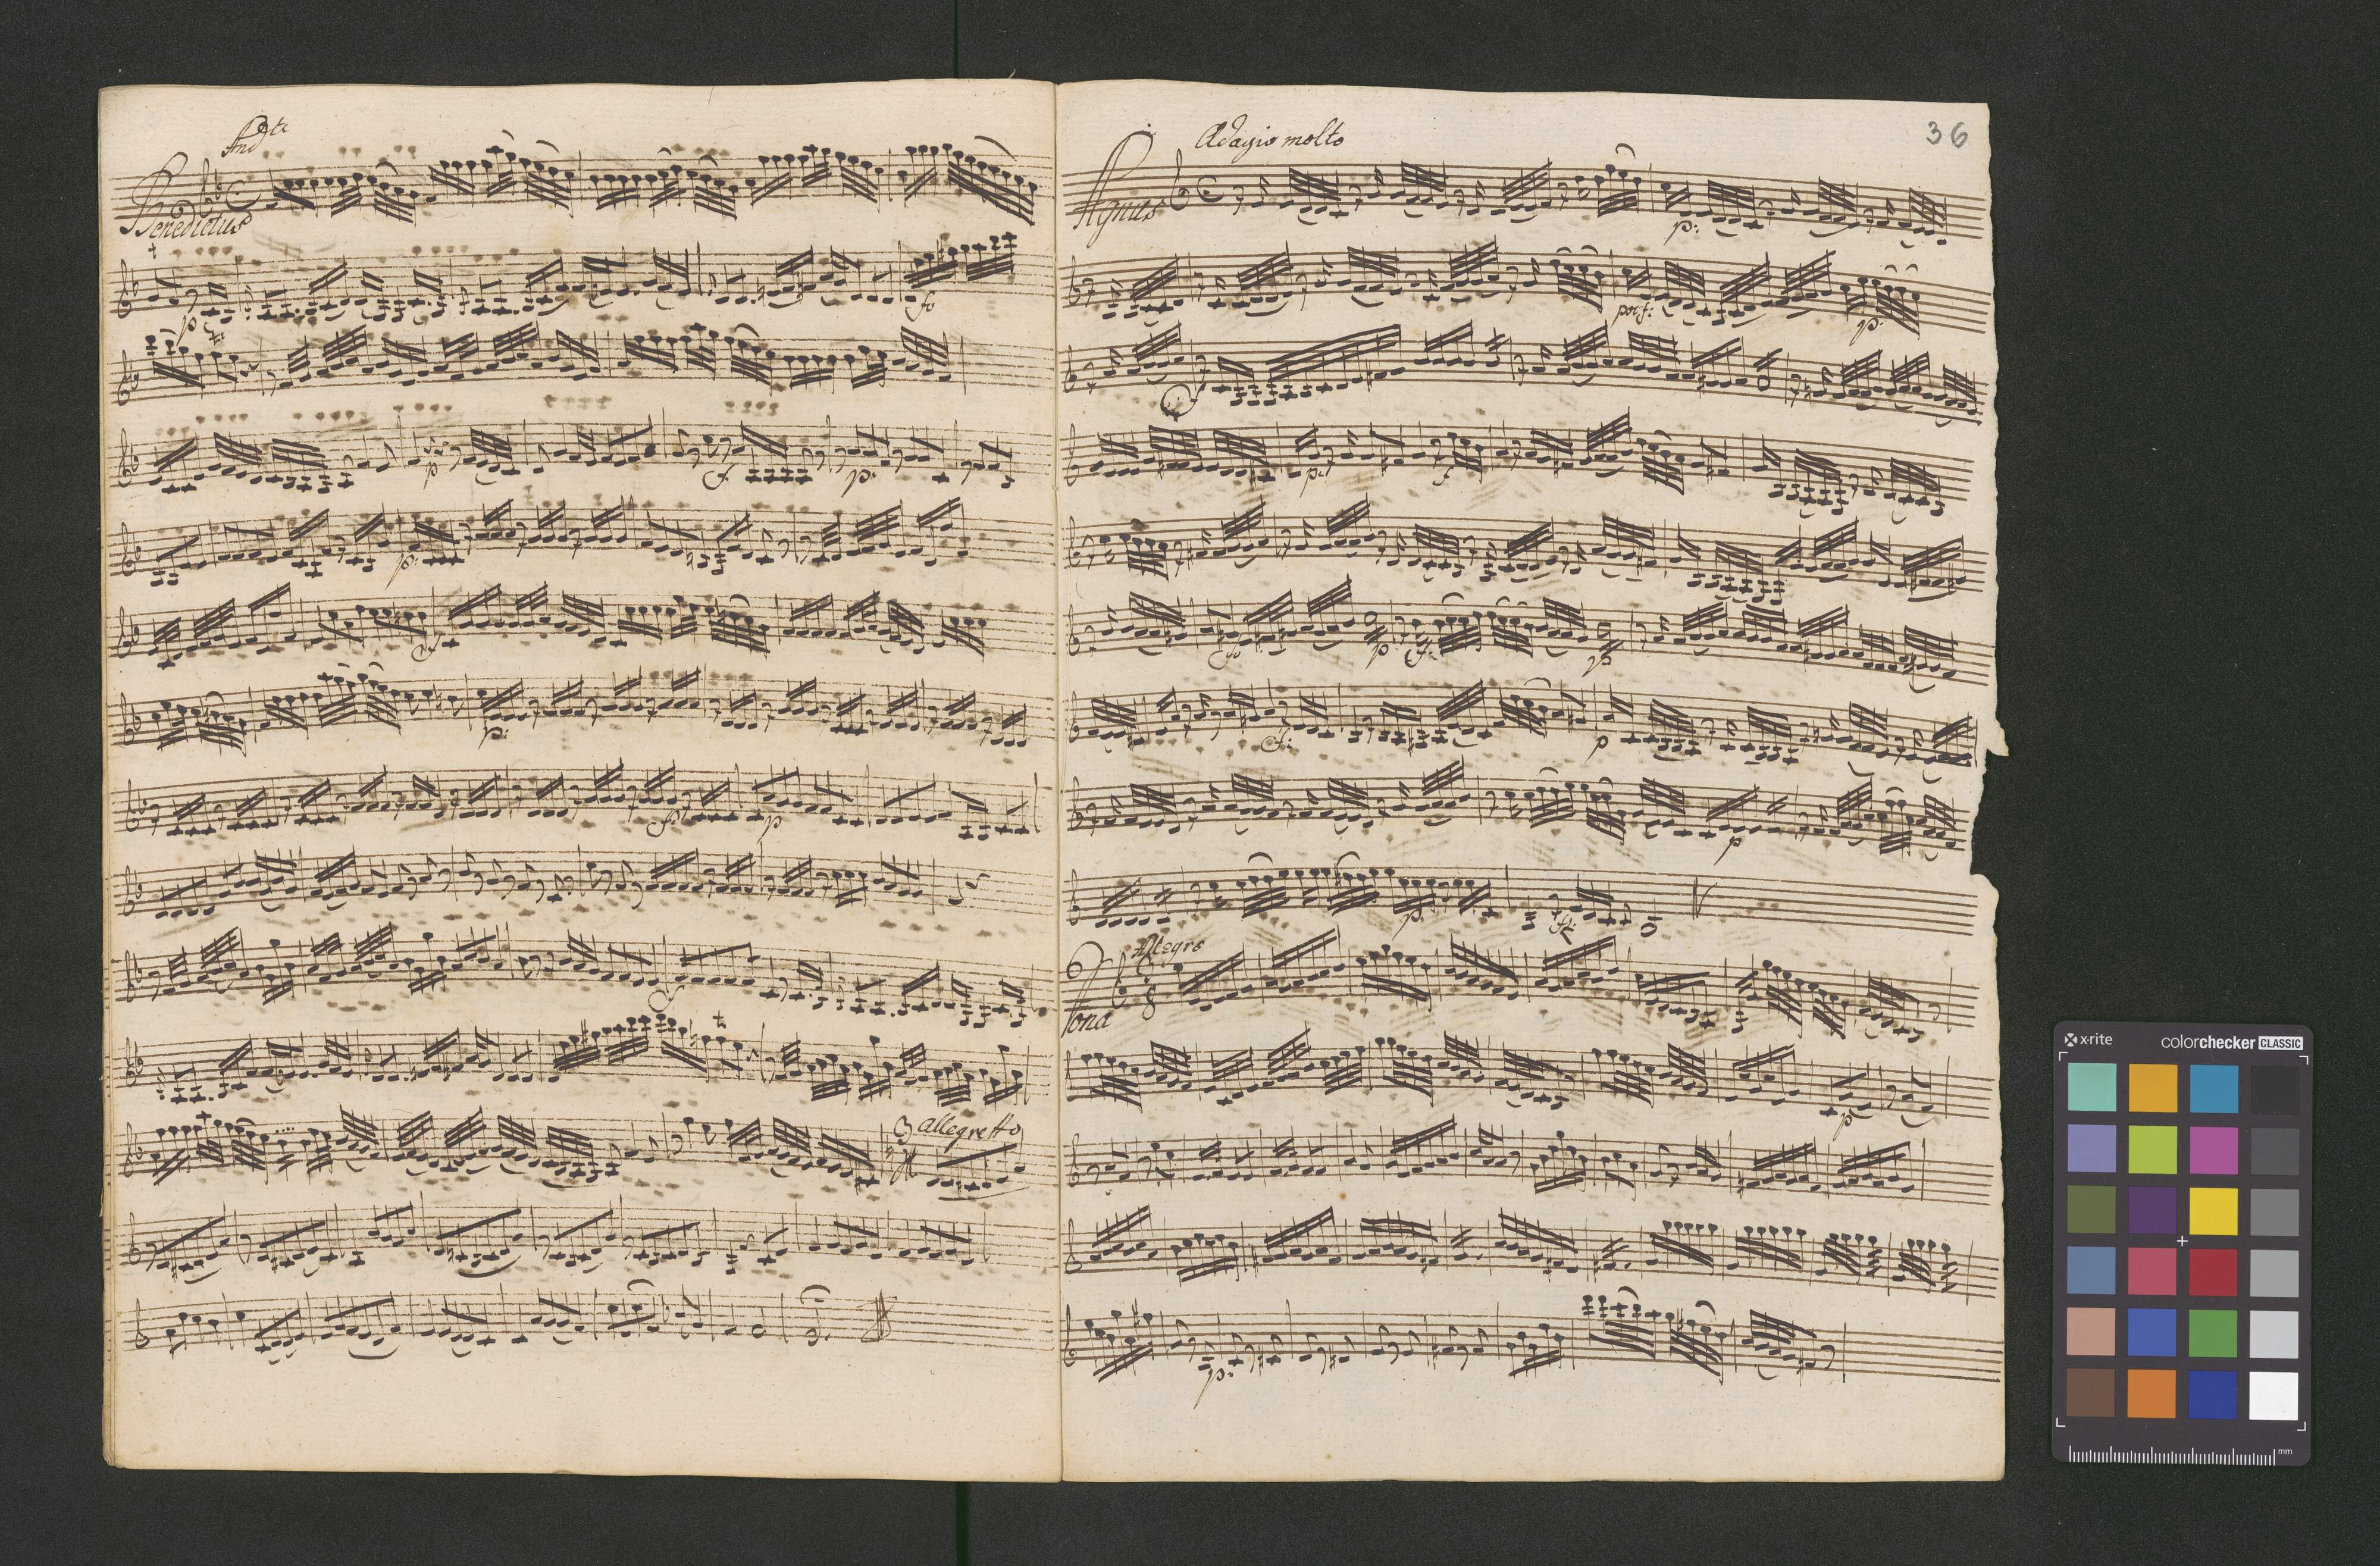 And^te
Benedictus
p
fo
p
f
p:
p:
f
p:
fo
p
f
3 allegretto
36
Adagio molto
Agnus
p:
pocf:
p:
p:
f
fo
p
f:
p
f:
p
p
p:
fo:
Allegro
Dona
6
8
p
p:
x·rite
colorchecker CLASSIC
mm